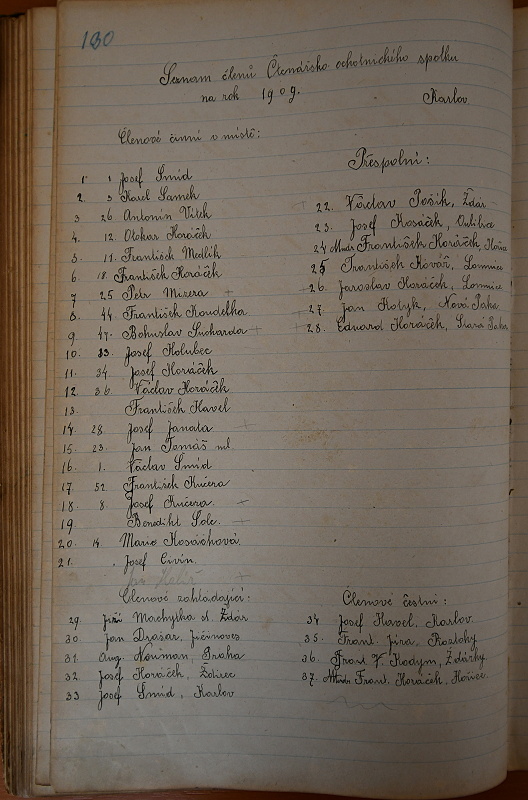 130
Seznam členů Čtenářsko-ochotnického spolku
na rok 1909.
Karlov
Členové činní v místě:
1 1 Josef Šmíd
2. 3 Karel Samek
3 26 Antonín Vítek
4. 12. Otokar Horáček
5. 11. František Medlík
6. 18. František Horáček
7 25 Petr Mizera
8. 44. František Koudelka
9 47. Bohuslav Sucharda
10. 33. Josef Holubec
11. 34. Josef Horáček
12. 36. Václav Horáček
13. František Havel
14. 28. Josef Janata
15. 23. Jan Tomáš ml.
16. 1. Václav Šmíd
17. 52. František Kučera
18. 8. Josef Kučera.
19 Benedikt Šolc.
20. 14. Marie Kosáčková
21. Josef Civín.
Přespolní:
22. Václav Pošík, Žďár
23. Josef Kosáček,
24 František Horáček,
25 František Kovář, Lomnice
26. Jaroslav Horáček, Lomnice
27. Jan Nová Paka
28. Eduard Horáček, Stará Paka
Členové zakládající:
29. Jiří Machytka st. Žďár
30. Jan Drašar, Jičínoves
31. Aug. Nauman, Praha
32. Josef Horáček, Ždírec
33 Josef Šmíd, Karlov
Členové čestní:
34 Josef Havel, Karlov.
35. Frant. Jíra, Roztoky.
36. Frant. V. Kodym, Žďárky.
37. Frant. Horáček, Hořice.